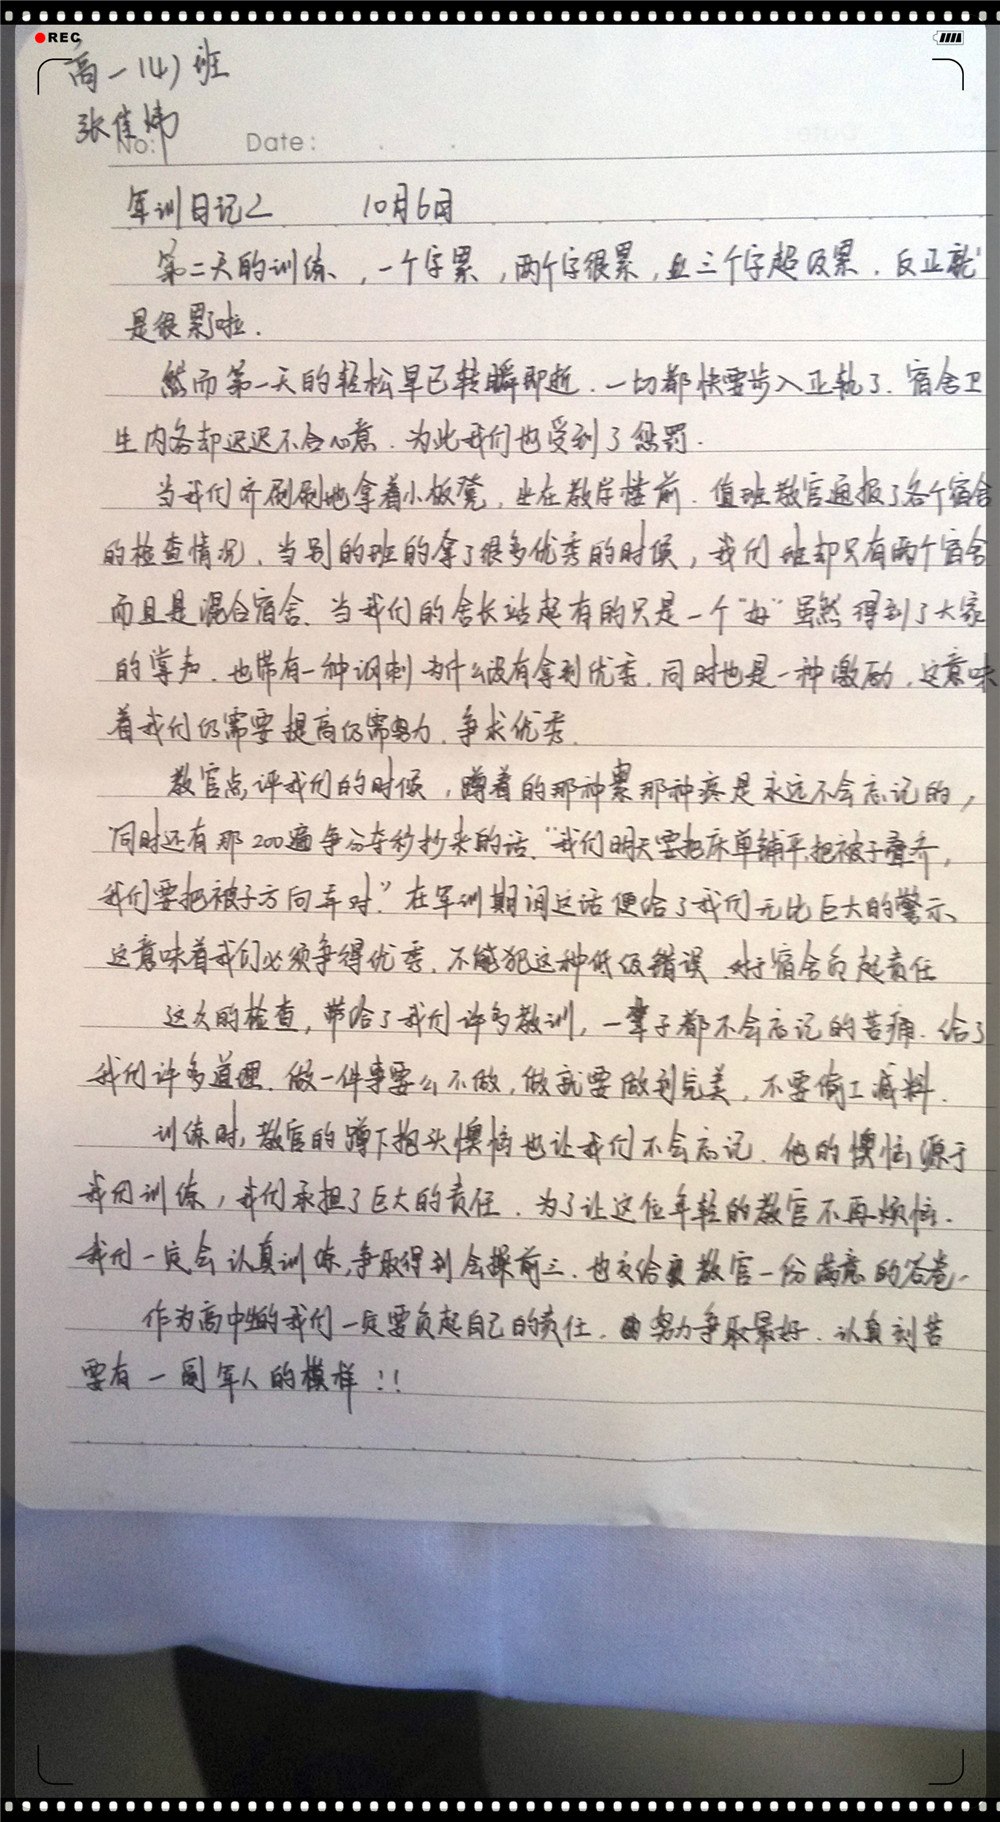 REC
高一(4)班
张佳炜
No:
Date:
军训日记2 10月6日
第二天的训练，一个字累，两个字很累，三个字超级累．反正就
是很累啦．
然而第一天的轻松早已转瞬即逝．一切都快要步入正轨了．宿舍卫
生内务却迟迟不合心意．为此我们也受到了惩罚．
当我们齐刷刷地拿着小板凳，坐在教学楼前．值班教官通报了各个宿舍
的检查情况、当别的班的拿了很多优秀的时候，我们班却只有两个宿舍
而且是混合宿舍、当我们的舍长站起有的只是一个"好"虽然得到了大家
的掌声．也带有一种讽刺为什么没有拿到优秀．同时也是一种激励．这意味
着我们仍需要提高仍需努力．争求优秀．
教官点评我们的时候，蹲着的那种累那种疼是永远不会忘记的，
同时还有那200遍争分夺秒抄来的话．"我们明天要把床单铺平，把被子叠齐，
我们要把被子方向弄对．"在军训期间这话便给了我们无比巨大的警示、
这意味着我们必须争得优秀．不能犯这种低级错误．对于宿舍负起责任
这次的检查，带给了我们许多教训，一辈子都不会忘记的苦痛．给了
我们许多道理．做一件事要么不做，做就要做到完美，不要偷工减料．
训练时，教官的蹲下抱头懊恼也让我们不会忘记．他的懊恼源于
我们训练，我们承担了巨大的责任．为了让这位年轻的教官不再烦恼．
我们一定会认真训练，争取得到会操前三．也交给教官一份满意的答卷．
作为高中生的我们一定要负起自己的责任．努力争取最好．认真刻苦
要有一副军人的模样！！